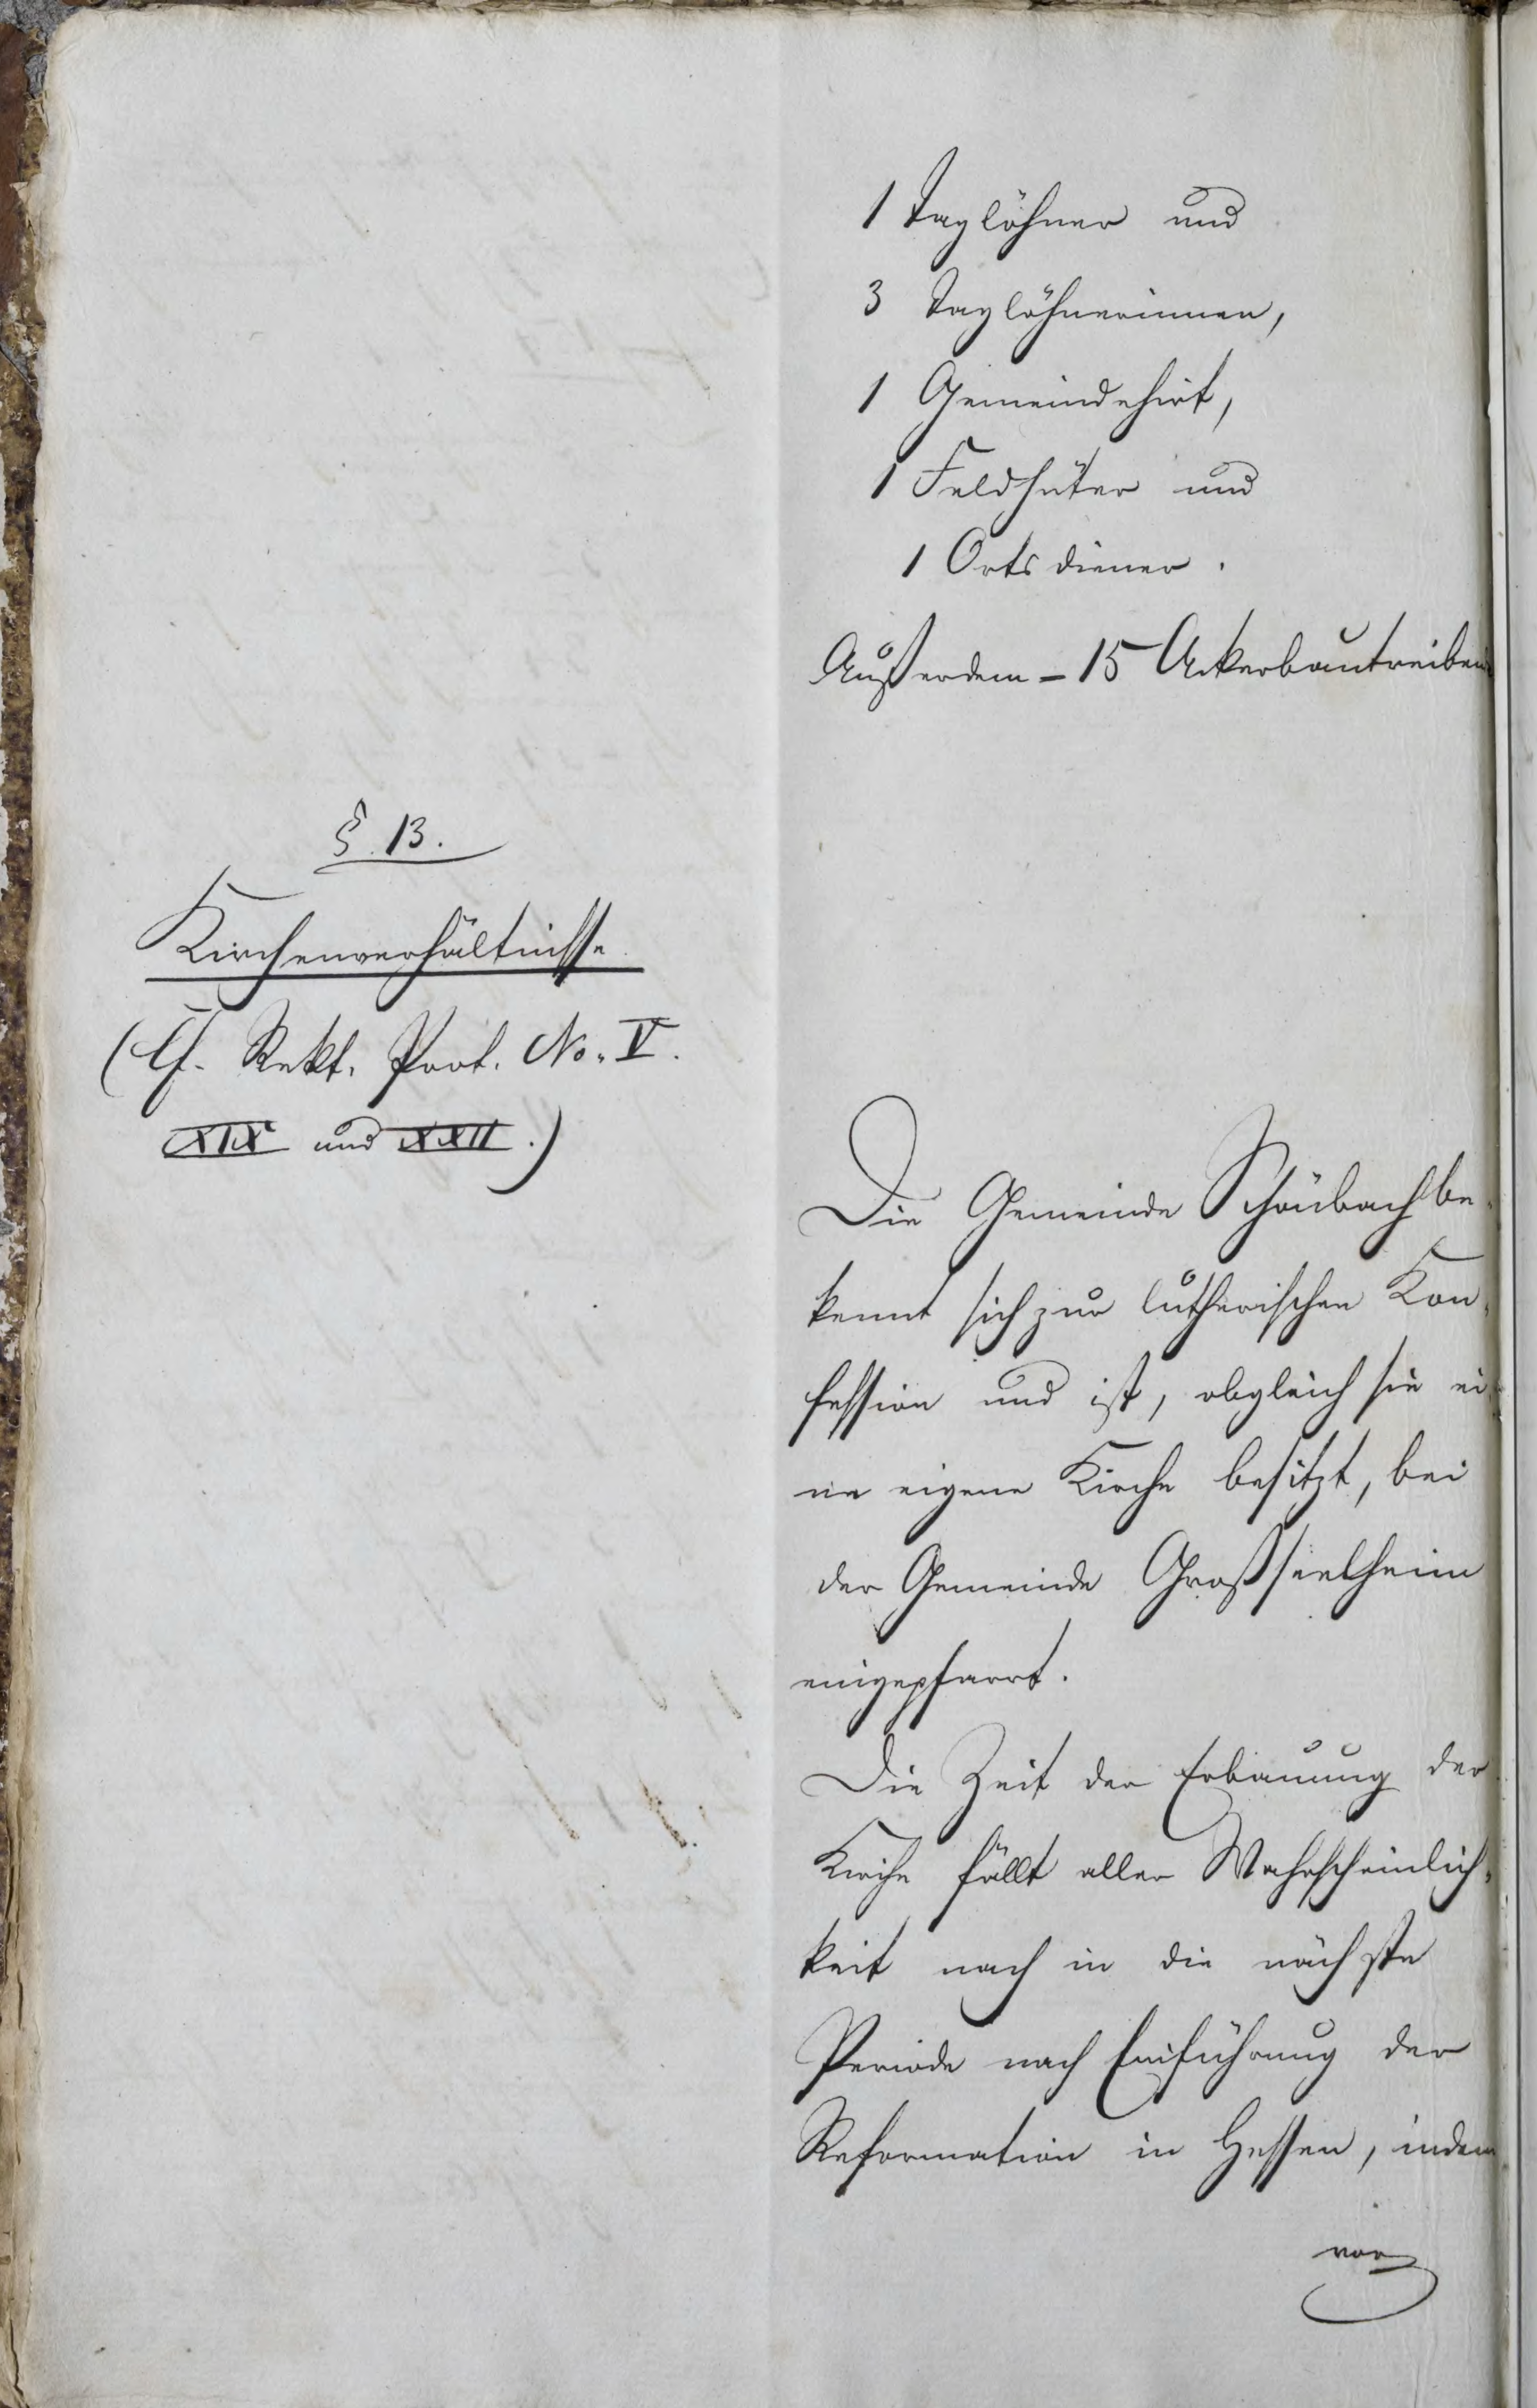 1 Taglöhner und
3 Taglöhnerinnen,
1 Gemeindehirt,
1 Feldhüter und
1 Ortsdiener.
Außerdem = 15 Ackerbautreiben
§. 13.
Kirchenverhältnisse.
(Cf. Rekt. Prot. No. V.
XIX und XXII.)
Die Gemeinde Schönbach be-
kennt sich zur lutherischen Kon-
fession und ist, obgleich sie ei-
ne eigene Kirche besitzt, bei
der Gemeinde Großseelheim
eingepfarrt.
Die Zeit der Erbauung der
Kirche fällt aller Wahrscheinlich-
keit nach in die nächste
Periode nach Einführung der
Reformation in Hessen, indem
vor